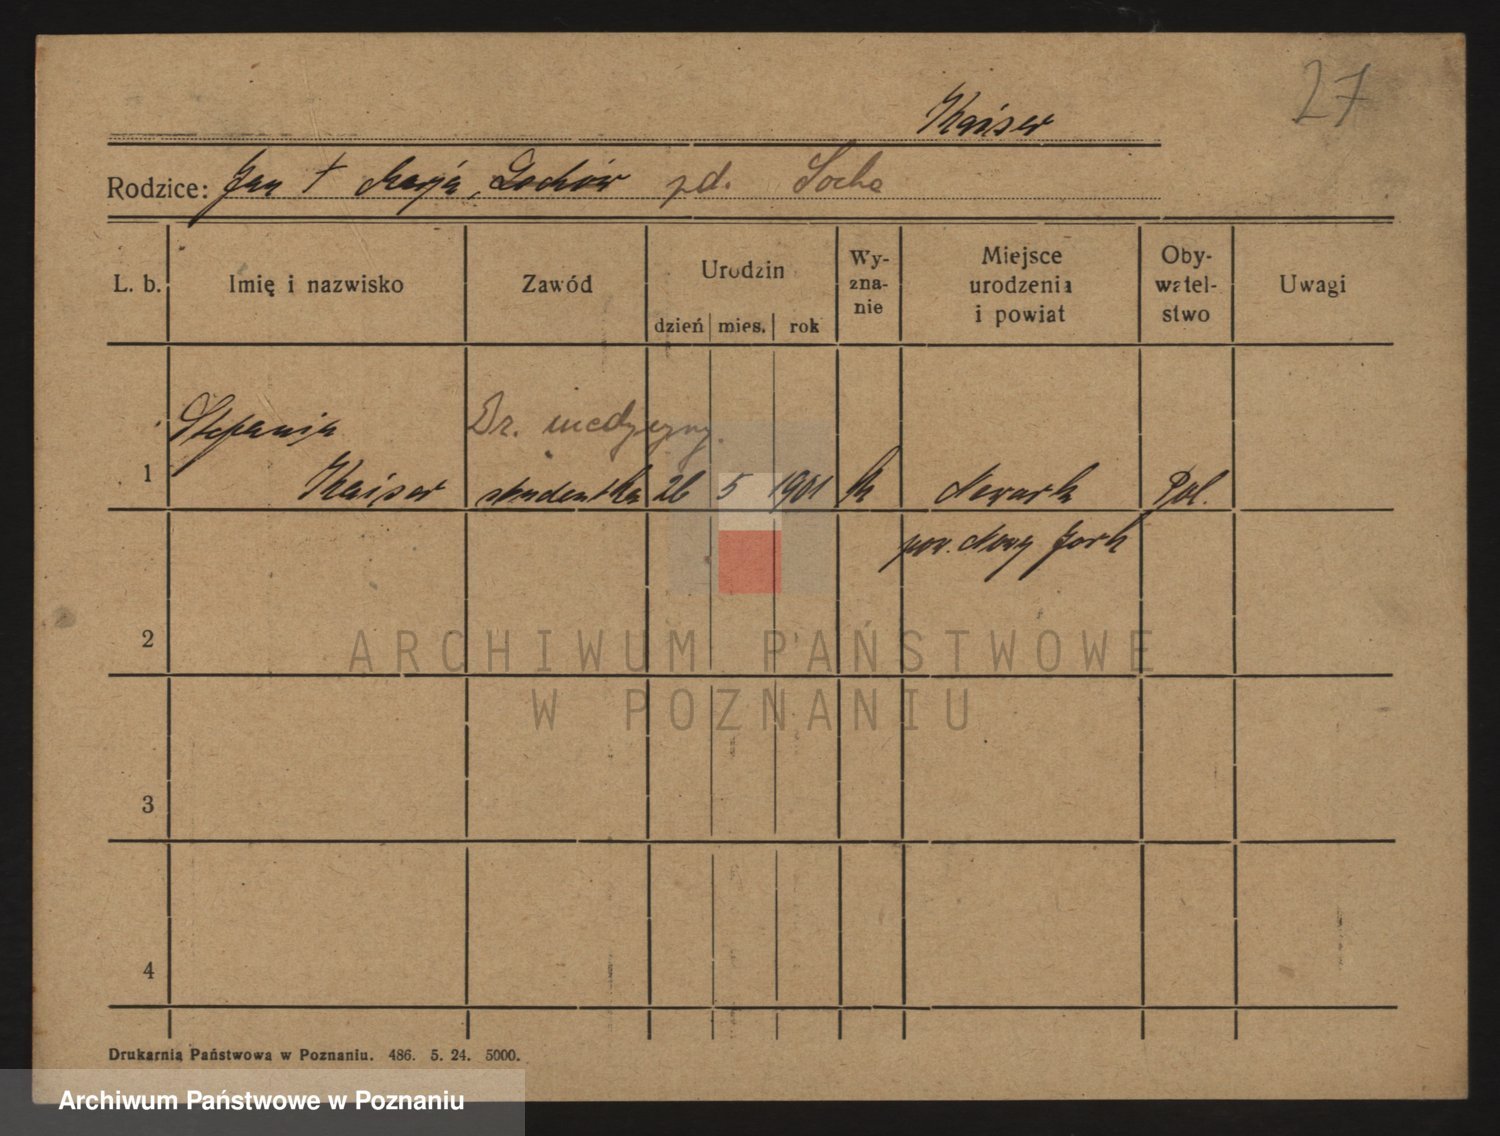 27
Kaiser
Rodzice: Jan † Marja, Lochów zd. Socha
L. b. Imię i nazwisko Zawód Urodzin dzień mies. rok Wy-zna-nie Miejsce urodzenia i powiat Oby-watel-stwo Uwagi
Stefanja Dr. medycyny.
1 Kaiser studentka 26 5 1901 k Newark Pol.
pow. Nowy Jork
2
ARCHIWUM PAŃSTWOWE
W POZNANIU
3
4
Drukarnia Państwowa w Poznaniu. 486. 5. 24. 5000.
Archiwum Państwowe w Poznaniu